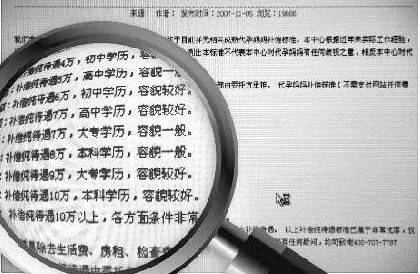 来源： 作者： 发布时间：2007-11-05 浏览：19686
目前并无相关成熟代孕妈妈补偿标准，本中心根据近年来实际工作经验，
列出本标准不代表本中心对代孕妈妈有任何歧视之意，相反本中心对代
代孕妈妈补偿标准（不需支付网站任何费
补偿纯待遇4万，初中学历，容貌一
补偿纯待遇5万，高中学历，容貌一
补偿纯待遇6万，初中学历，容貌较好。
补偿纯待遇7万，高中学历，容貌较好。
补偿纯待遇7万，大专学历，容貌一般。
补偿纯待遇8万，本科学历，容貌一般。
补偿纯待遇9万，大专学历，容貌较好。
补偿纯待遇10万，本科学历，容貌较好。
补偿纯待遇10万以上，各方面条件非常
以上补偿纯待遇标准已属于非常优厚，仅
除去生活费、房租、检查
有任何疑问，均可致电400-707-7787